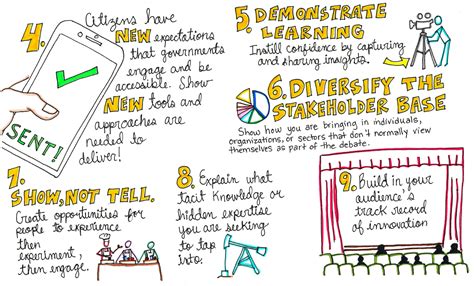 4.
Citizens have
NEW expectations
that governments
engage and be
accessible. Show
NEW tools and
approaches are
needed to
deliver!
SENT!
5. DEMONSTRATE
LEARNING
Instill confidence by capturing
and sharing insights.
6. DIVERSIFY THE
STAKEHOLDER BASE
Show how you are bringing in individuals,
organizations, or sectors that don't normally view
themselves as part of the debate.
7.
SHOW, NOT TELL.
Create opportunities for
people to experience
then
experiment,
then engage.
8. Explain what
tacit knowledge or
hidden expertise
you are seeking
to tap
into.
9. Build in your
audience's
track record
of innovation